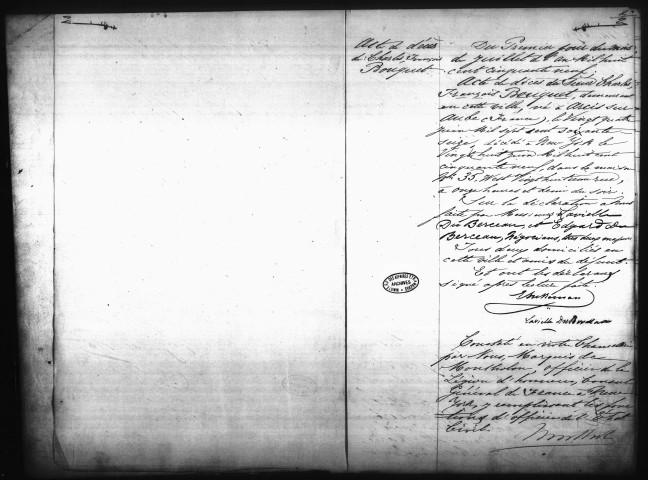 Acte de décès
de Charles François
Bouquet
Du Premier jour du mois
de Juillet l'An Mil huit
cent cinquante neuf
Acte de décès du Sieur Charles
François Bouquet, demeurant
en cette ville, né à Arcis sur
Aube (France), le Vingt quatre
Juin Mil sept cent soixante
seize, décédé à New York le
Vingt huit Juin Mil huit cent
cinquante neuf, dans la maison
No. 35. West Vingt huitième rue,
à onze heures et demi du soir.
Sur la déclaration à Nous
faite par Messieurs Laviette
Du Berceau, et Edgard Du
Berceau, Négocians, tous deux majeurs
Tous deux domiciliés en
cette ville et amis du défunt.
Et ont les déclarans
signé après lecture faite.
ARCHIVES
Constaté en notre Chancellerie
par Nous, Marquis de
Montholon, officier de la
Légion d'honneur, Consul
Général de France à New
York, y remplissant les fonc-
tions d'officier de l'Etat
Civil.